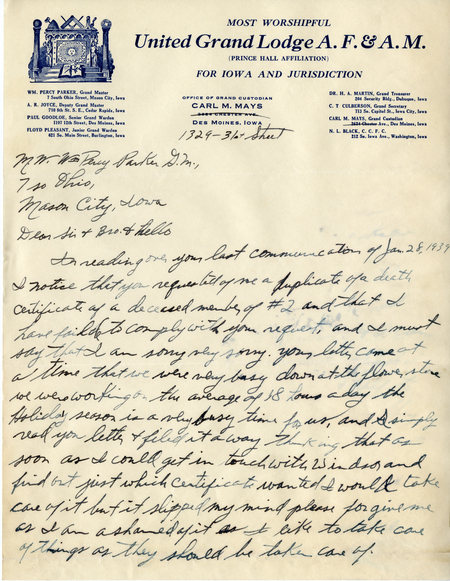 MOST WORSHIPFUL
United Grand Lodge A. F. & A. M.
(PRINCE HALL AFFILIATION)
FOR IOWA AND JURISDICTION
WM. PERCY PARKER, Grand Master
7 South Ohio Street, Mason City, Iowa
A. R. JOYCE, Deputy Grand Master
710 8th St. S. E., Cedar Rapids, Iowa
PAUL GOODLOE, Senior Grand Warden
1107 12th Street, Des Moines, Iowa
FLOYD PLEASANT, Junior Grand Warden
621 So. Main Street, Burlington, Iowa
OFFICE OF GRAND CUSTODIAN
CARL M. MAYS
DES MOINES, IOWA
1329-31st Street
DR. H. A. MARTIN, Grand Treasurer
204 Security Bldg., Dubuque, Iowa
C. T. CULBERSON, Grand Secretary
713 So. Capitol St., Iowa City, Iowa
CARL M. MAYS, Grand Custodian
Ave., Des Moines, Iowa
N. L. BLACK, C. C. F. C.
212 So. Iowa Ave., Washington, Iowa
M.W. Wm Percy Parker G.M.,
7 so Ohio,
Mason City, Iowa
Dear Sir & Bro. & Hello
In reading over your last communication of Jan. 28, 1939
I notice that you requested of me a duplicate of a death
certificate of a deceased member of #2 and that I
have failed to comply with your request, and I must
say that I am sorry very sorry. your letter came at
a time that we were very busy down at the flower store
we were working on the average of 18 hours a day the
Holiday season is a very busy time for us, and I simply
read you letter & filed it away thinking that as
soon as I could get in touch with Windsor, and
find out just which certificate wanted I would take
care of it but it slipped my mind please forgive me
as I am ashamed of it as I like to take care
of things as they should be taken care of.